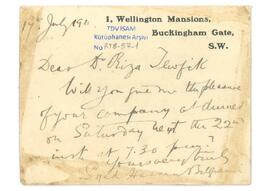 1, Wellington Mansions,
Buckingham Gate,
S.W.
19th July 1911
TDV İSAM
Kütüphanesi Arşivi
No RTB-571
Dear Dr Riza Tewfik
Will you give me the pleasure
of your company at dinner
on Saturday next the 22nd
inst at 7.30 p.m.?
Yours very truly
Syed Hassan Belgrami